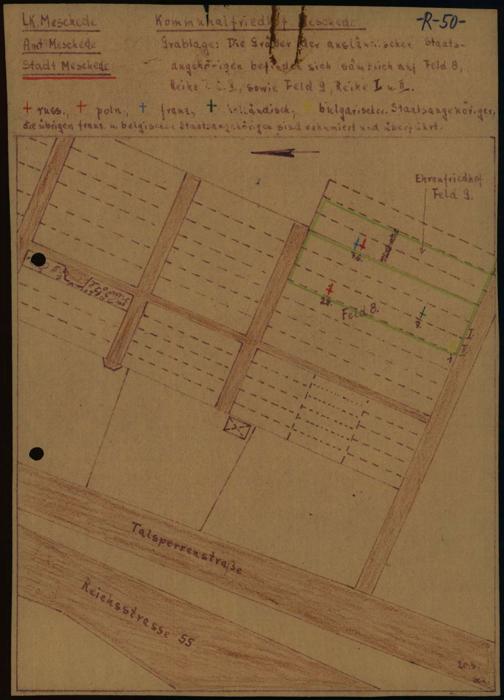 LK. Meschede Kommunalfriedhof Meschede -R-50-
Amt Meschede
Stadt Meschede
Grablage: Die Gräber der ausländischen Staats-
angehörigen befinden sich sämtlich auf Feld 8,
Reihe 1 u. 2, sowie Feld 9, Reihe I u. II.
+ russ., + poln., + franz., + holländisch, bulgarischer Staatsangehöriger,
die übrigen franz. u. belgischen Staatsangehörigen sind exhumiert und überführt.
Ehrenfriedhof
Feld 9.
Feld 8.
I
Talsperrenstraße
Reichsstrasse 55